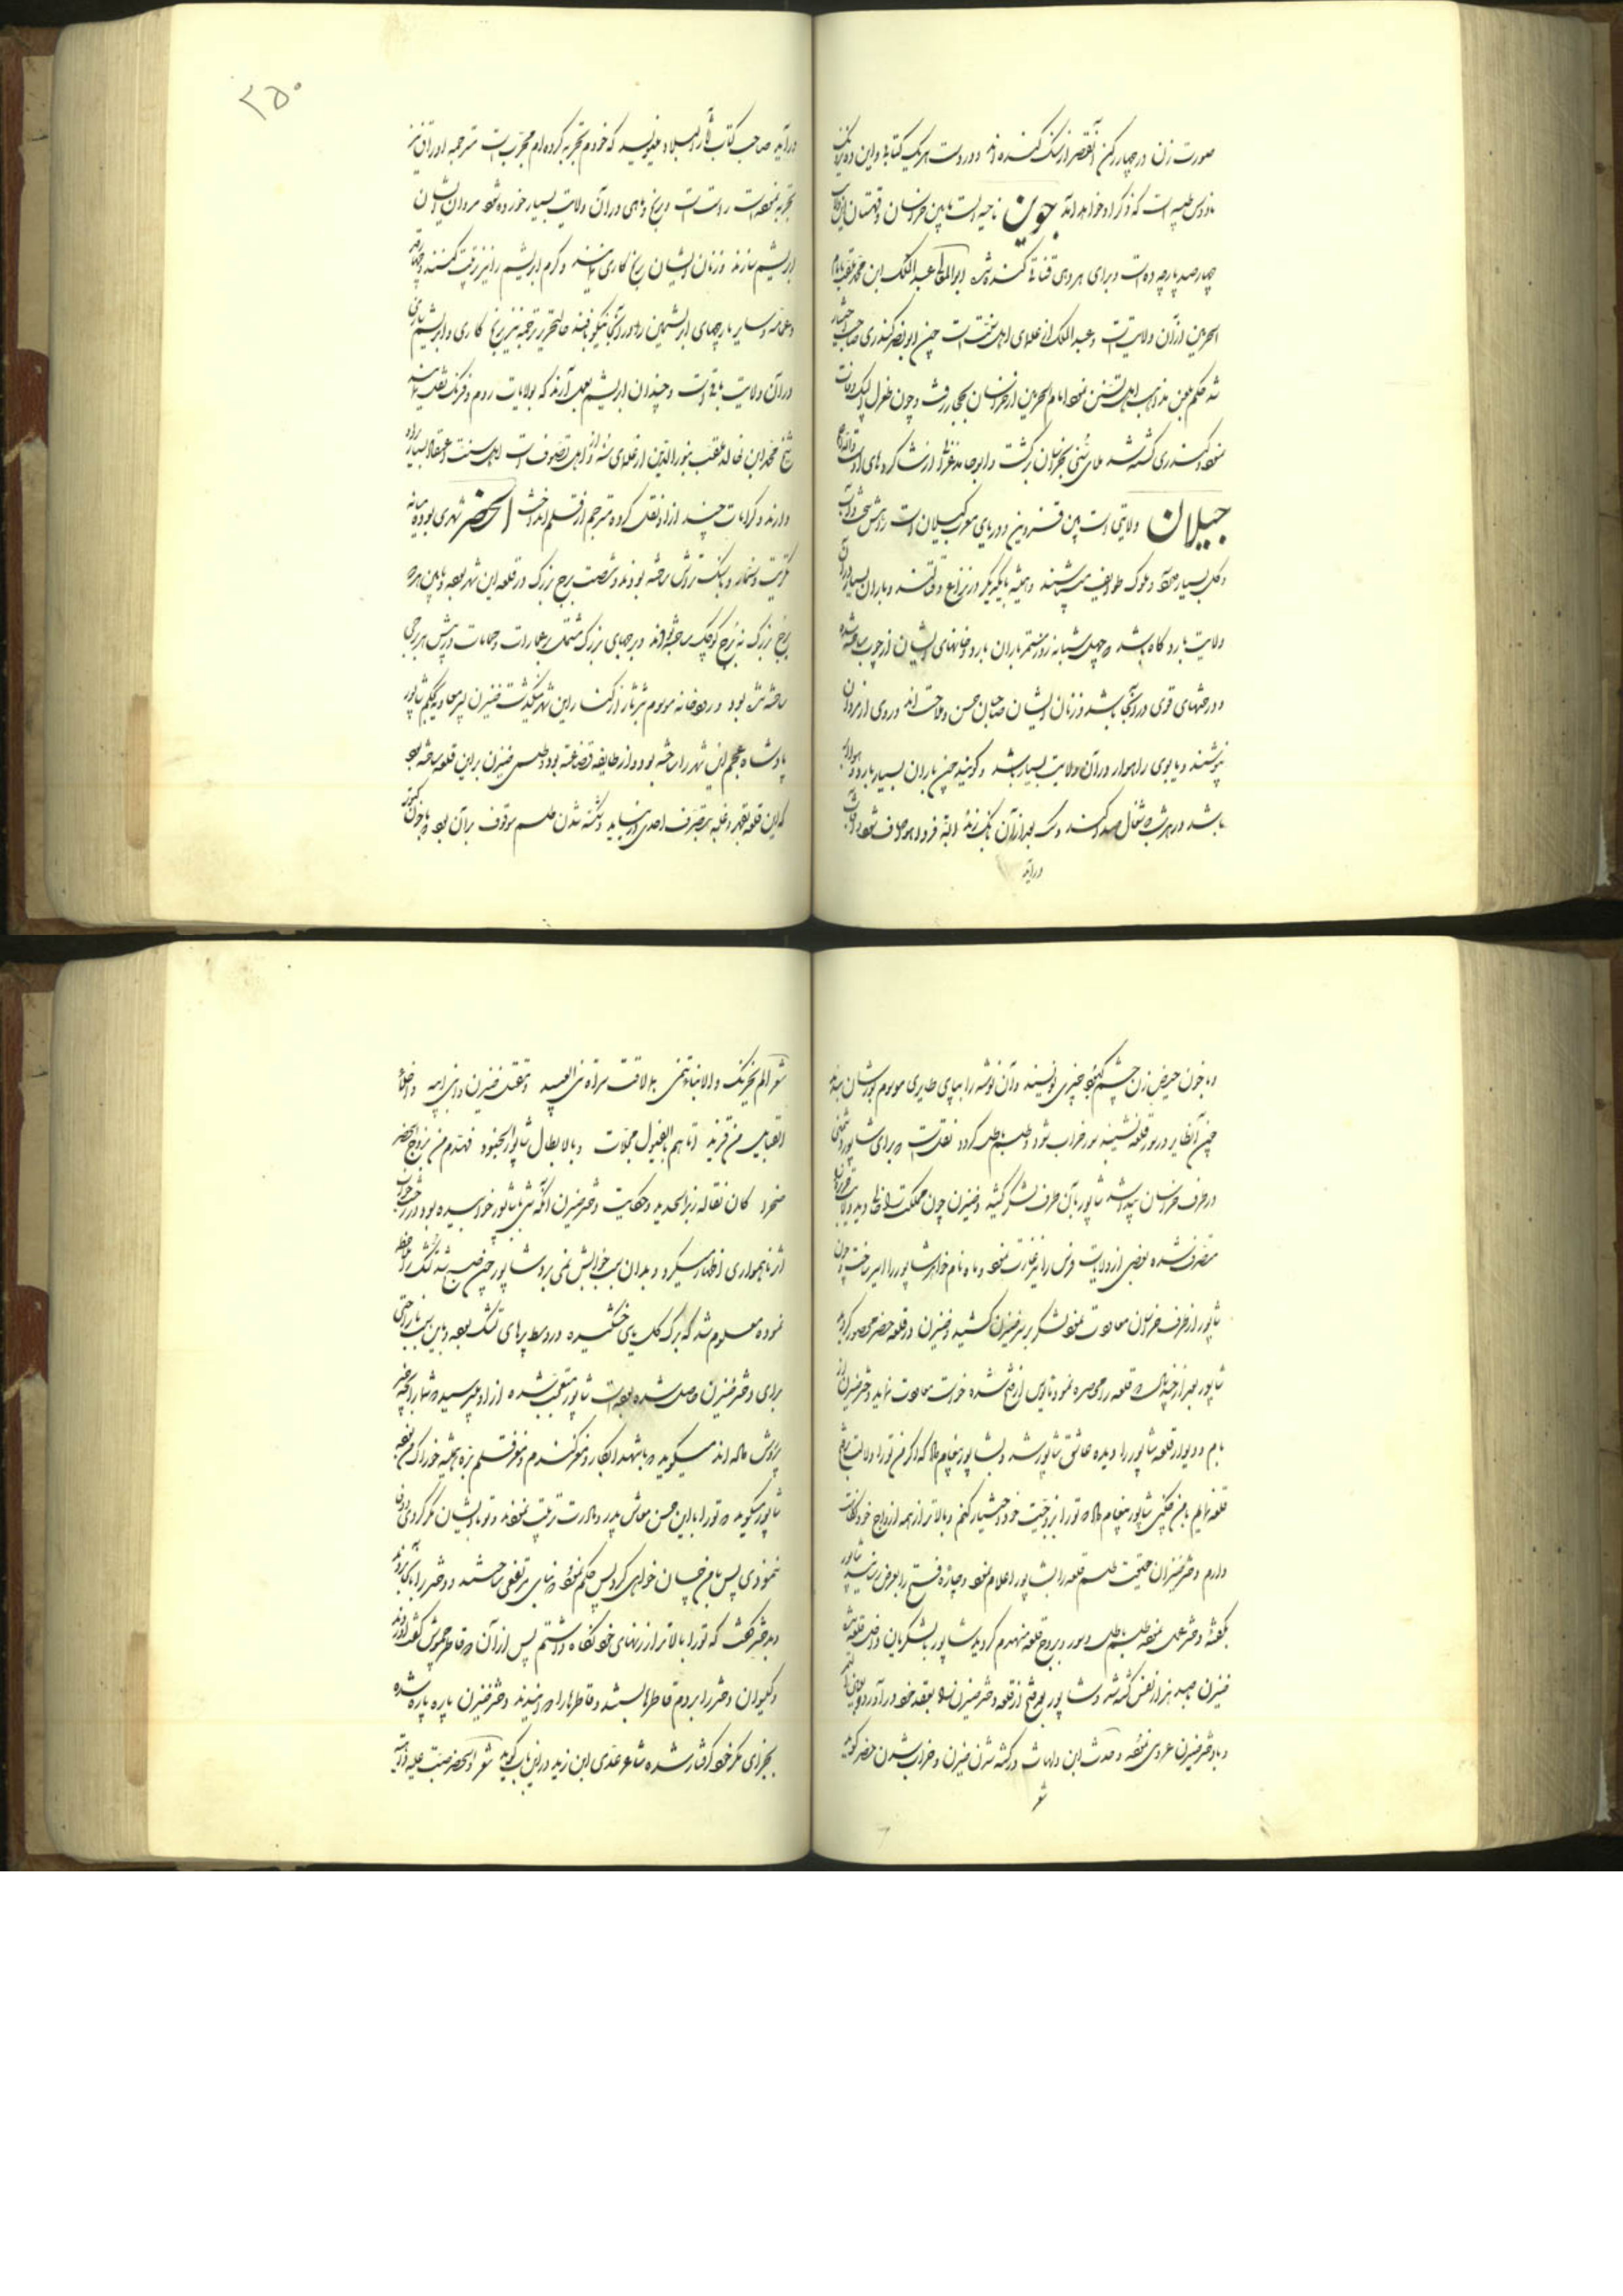 صورت زن در چهار رکن آنقصر از سنک کنده‌اند و در دست هر یک کتابه و این ده
است که ذکر او خواهد آمد جوین ناحیه ایست مابین خراسان و قهستان
چهارصد پارچه ده است و برای هر دهی قناتی کنده شده ابوالمعالی عبدالملک ابن محمد
الحرمین از آن ولایت است و عبدالملک از علمای اهل سنت است چون ابونصر کندری صاحب اختیار
شد حکم بلعن مذاهب اهل تسنن نمود امام الحرمین از خراسان بحجاز رفت و چون طغرل
نمود و کندری کشته شد ملای سنی بخراسان برگشت و ابوحامد غزالی از شاگردهای
جیلان ولایتی است بین قزوین و دریای گیلان است راهش سخت و آب
و گل بسیار دارد و ملوک طوایف میباشند و همیشه با یکدیگر در نزاع و باران بسیار
ولایت بارد گاه باشد که چهل شبانه روز مستمر باران بارد و خانهای ایشان از چوب ساخته شده
و درختهای قوی در آنجا باشد و زنان ایشان صاحبان حسن و ملاحت‌اند و روی از مردان
نپوشند و یابوی راهوار در آن ولایت بسیار باشد و گویند چون باران بسیار بارد
باشد در هر شب که شغال صدا کند و سگ بعد از آن بانک زند البته فردا هوا صاف شود و آفتاب
درآید
۲۵۰
درآید صاحب کتاب آثار البلاد میگوید که خودم تجربه کرده‌ام مجرب است مترجم اوراق نیز
تجربه نموده است راست است و برنج و ماهی در آن ولایت بسیار خورده شود مردان ایشان
ابریشم سازند و زنان ایشان برنج کاری نمایند و کرم ابریشم را نیز تربیت کنند
و عمامه و سایر پارچهای ابریشمین را در آنجا نیکو بافند حالتحریر ترجمه نیز برنج کاری و ابریشم
در آن ولایت باقی است و چندان ابریشم بعمل آرند که بولایات روم و فرنگ نقل
شیخ محمد ابن خالد ملقب بنورالدین از علمای سنه و از اهل تصوف است اهل سنت اعتقاد بسیار
دارند و کرامات چند از او نقل کرده مترجم از قلم انداخت الحضر شهری بوده میانه
تکریت و سنجار و با سنک تراش ساخته بودند و شصت برج بزرگ در قلعه این شهر بوده و مابین هر دو
برج بزرگ نه برج کوچک ساخته بودند و برجهای بزرگ مشتمل بر عمارات و حمامات
ساخته شده بود و رودخانه موسوم به ثرثار از کنار این شهر میگذشت ضیزن ابن معاویه بحکم شاپور
پادشاه عجم این شهر را ساخته بود و از طایفه قضاعه بود و طلسمی ضیزن برای این قلعه ساخته بود
که این قلعه بقهر و غلبه بتصرف احدی در نیاید و شکسته شدن طلسم موقوف بر آن بود که با خون کبوتر
و با خون حیض زن چشم کبود چیزی نویسند و آن نوشته را بپای طایری موسوم بورشان بندند
چون آن طایر در سور قلعه نشیند سور خراب شود و طلسم باطل گردد نقلست که برای شاپور دشمنی
در طرف خراسان پیدا شد شاپور بآن طرف لشکر کشید و ضیزن چون مملکت را خالی دید
متصرف شده بعضی از ولایت فرس را نیز غارت نمود و ماه نام خواهر شاپور را اسیر ساخت و چون
شاپور از طرف خراسان معاودت نمود لشکر بر سر ضیزن کشید و ضیزن در قلعه حضر محصور گردید
شاپور بعد از چند سال که قلعه را محاصره نمود مایوس از فتح شده خواست معاودت نماید دختر ضیزن از
بام و دیوار قلعه شاپور را دیده عاشق شاپور شد و بشاپور پیغام داد که اگر من تو را دلالت بفتح
قلعه نمایم با من چکنی شاپور پیغام داد که تو را بزوجیت خود اختیار کنم و بالاتر از همه ازواج خود نگاهت
دارم دختر ضیزن حقیقت طلسم قلعه را بشاپور اعلام نمود و چاره فتح را بعرض رسانید شاپور
بگفته دختر عمل نموده طلسم باطل و سور و بروج قلعه منهدم گردید شاپور با لشکریان داخل قلعه شد
ضیزن با صد هزار نفس کشته شد و شاپور بعد فتح از قلعه دختر ضیزن را بعقد خود درآورد
و با دختر ضیزن عروسی نموده و حدث ابن دلهاث در کشته شدن ضیزن و خراب شدن حضر گوید
شعر
شعر الم یحزنک و الانباء تنمی بما لاقت سراة بنی العبید و مقتل ضیزن و بنی ابیه و احلاس
الکتائب من تزید اتاهم بالفیول مجللات و بالابطال شاپور الجنود فهدم من بروج الحضر
صخرا کان ثقاله زبر الحدید و حکایت دختر ضیزن آنکه شبی با شاپور خوابیده بود در رخت خواب
اثر ناهمواری اظهار میکرد و بدان سبب خوابش نمی برد شاپور چون صبح شد تشک را ملاحظه
نموده معلوم شد که برگ گلی خشکیده در وسط پرهای تشک بوده و باین سبب ناراحتی
برای دختر ضیزن حاصل شده بوده است شاپور متعجب شده از او میپرسید که شما را بچه چیز
پرورش داده‌اند میگوید که با شهد ابکار و مغز گندم و مغز قلم بره همیشه خوراک من بوده
شاپور میگوید که تو را با این حسن معاش پدر و مادرت تربیت نمودند و تو با ایشان مکر کردی و وفا
ننمودی پس با من چسان خواهی کرد پس حکم نمود که بنای مرتفعی ساختند و دختر را بآنجا بردند
و بدختر گفت که تو را بالاتر از زنهای خود نگاه داشتم پس از آن دو قاطر چموش گفت آوردند
و گیسوان دختر را بر دم قاطرها بستند و قاطرها را دوانیدند و دختر ضیزن پاره پاره شده
بجزای مکر خود گرفتار شده شاعر عدی ابن زید در این باب گوید شعر و الحضر صبت علیه داهیة